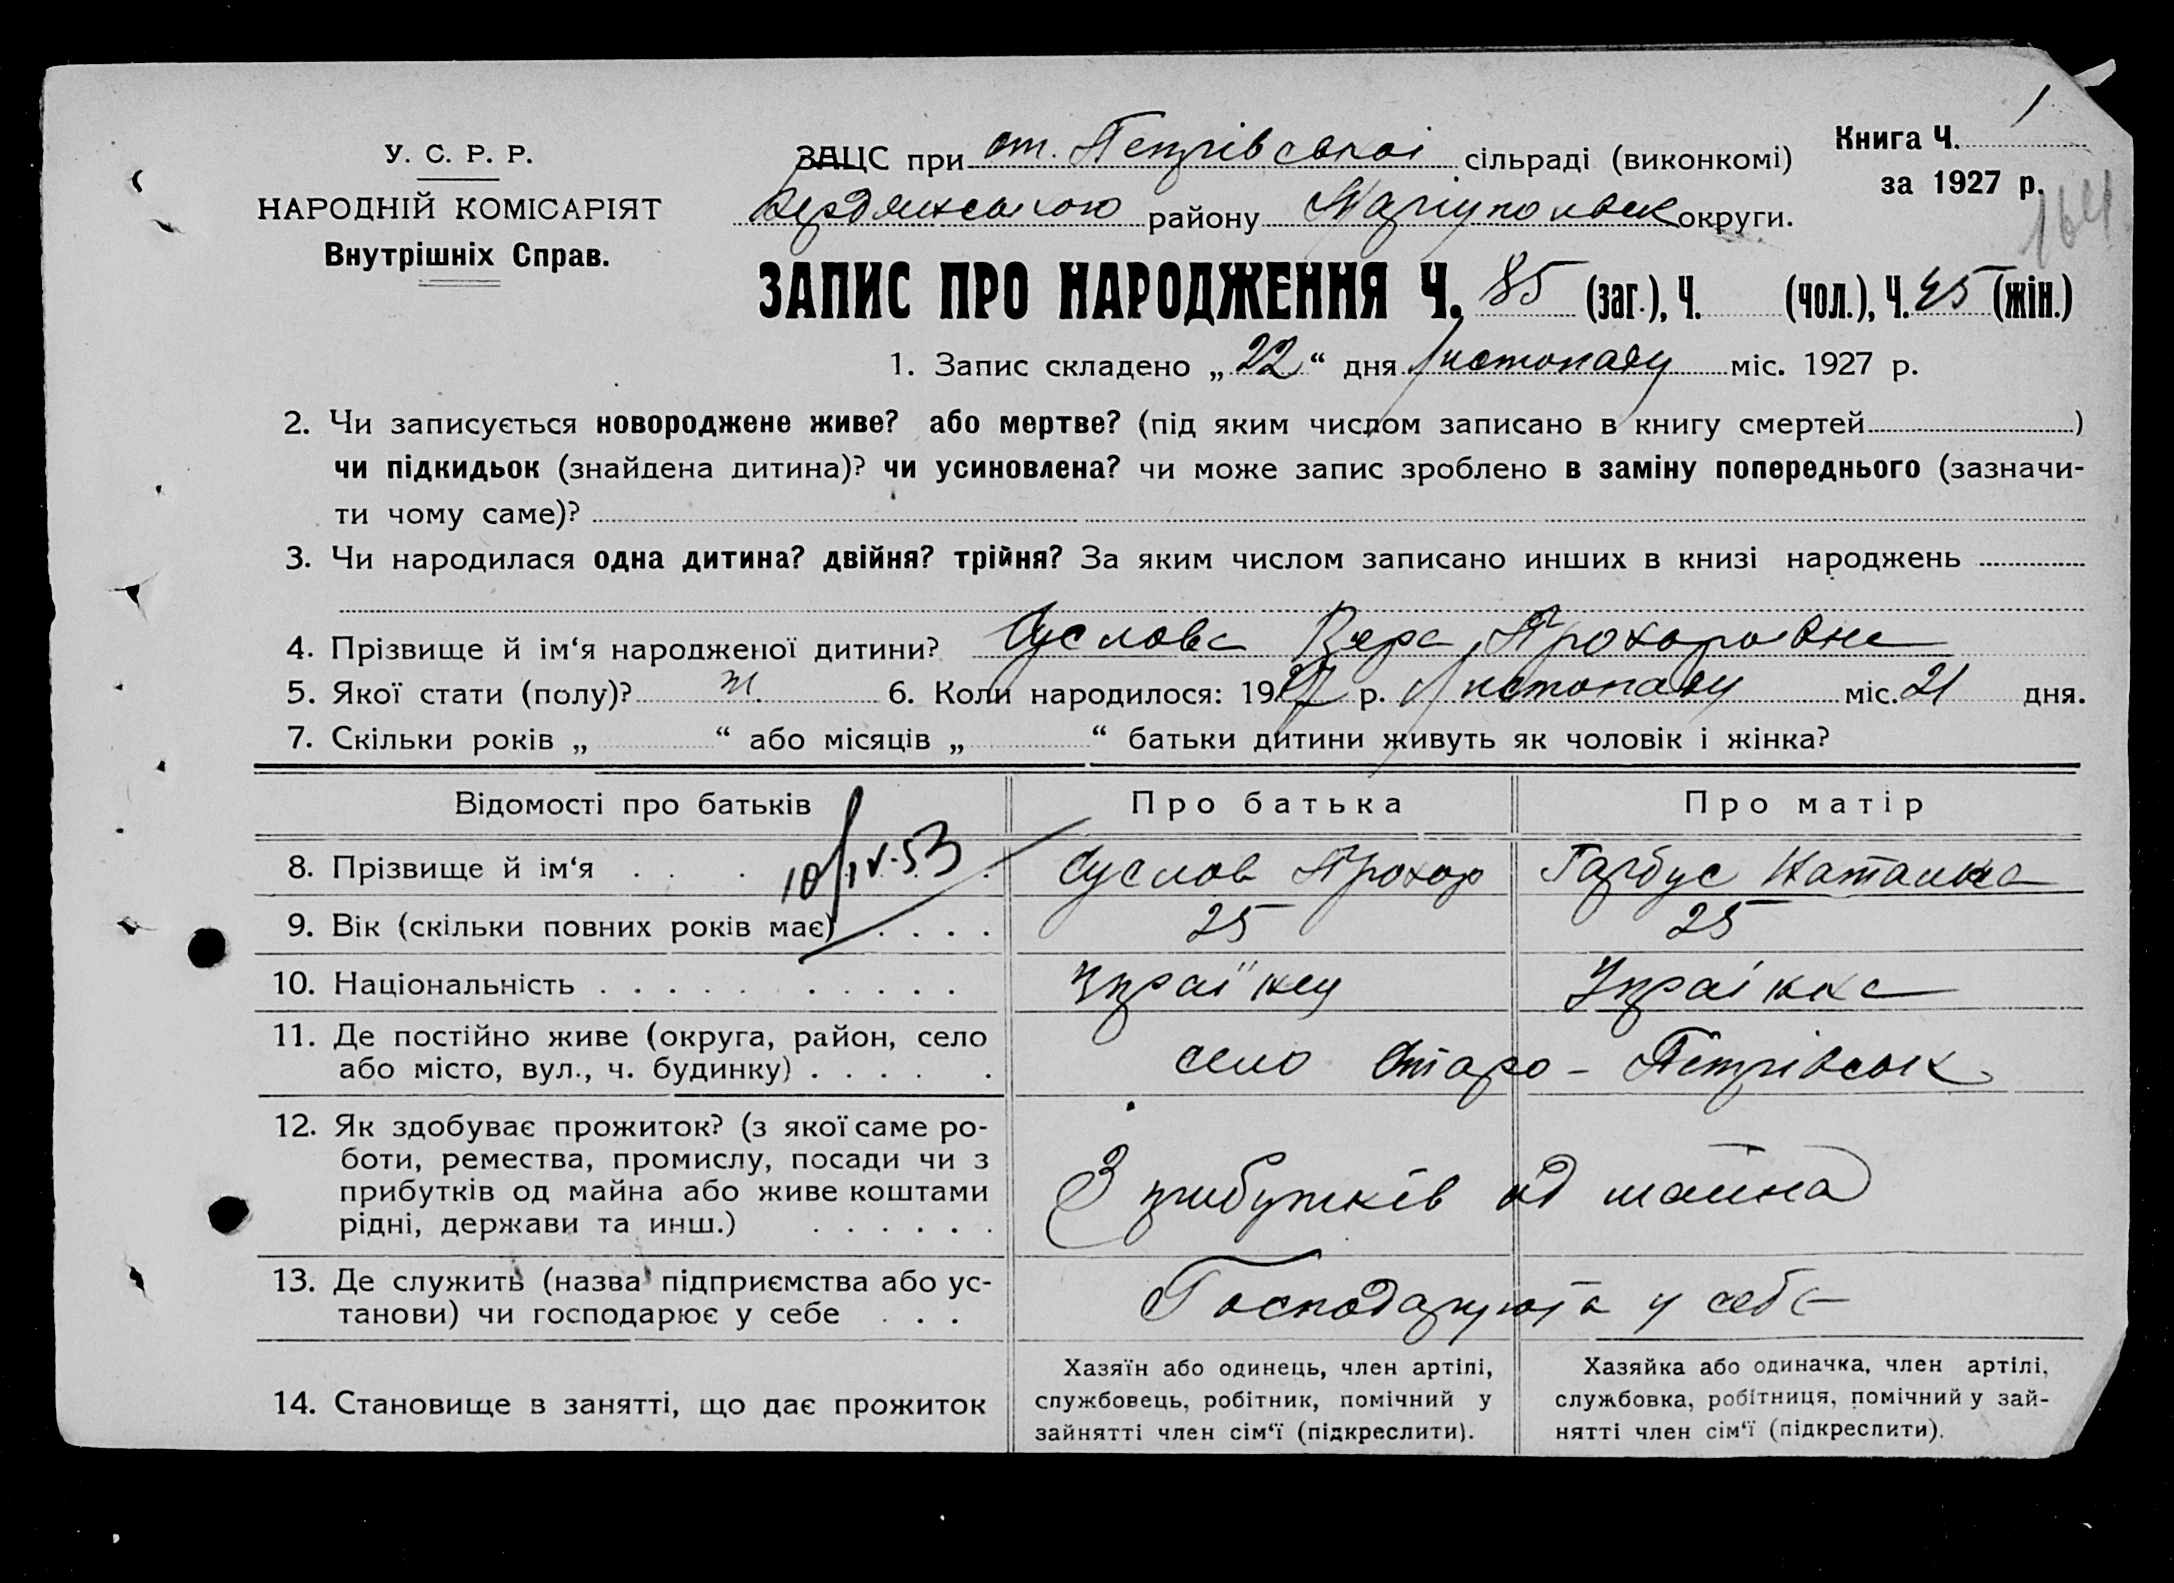 У. С. Р. Р.
НАРОДНІЙ КОМІСАРІЯТ
Внутрішніх Справ.
Книга Ч. 1
за 1927 р.
164
ЗАЦС при ст. Петрівської сільраді (виконкомі)
Бердянського району Маріупольськ округи.
ЗАПИС ПРО НАРОДЖЕННЯ Ч. 85 (заг.), Ч. (чол.), Ч. 45 (жін.)
1. Запис складено „ 22 “ дня Листопаду міс. 1927 р.
2. Чи записується новороджене живе? або мертве? (під яким числом записано в книгу смертей )
чи підкидьок (знайдена дитина)? чи усиновлена? чи може запис зроблено в заміну попереднього (зазначи-
ти чому саме)?
3. Чи народилася одна дитина? двійня? трійня? За яким числом записано инших в книзі народжень
4. Прізвище й ім‘я народженої дитини? Суслова Вера Прохоровна
5. Якої стати (полу)? ж. 6. Коли народилося: 1927 р. Листопаду міс. 21 дня.
7. Скільки років „ “ або місяців „ “ батьки дитини живуть як чоловік і жінка?
Відомості про батьків Про батька Про матір
10/IV-53
8. Прізвище й ім‘я . . . . Суслов Прохор Гарбус Наталка
9. Вік (скільки повних років має) . . . . 25 25
10. Національність . . . . . . . . . . . Українец Українка
11. Де постійно живе (округа, район, село
або місто, вул., ч. будинку) . . . . . село Старо - Петрівськ
12. Як здобуває прожиток? (з якої саме ро-
боти, ремества, промислу, посади чи з
прибутків од майна або живе коштами
рідні, держави та инш.) . . . . . . З прибутків од майна
13. Де служить (назва підприємства або ус-
танови) чи господарює у себе . . . Господарюють у себе
14. Становище в занятті, що дає прожиток
Хазяїн або одинець, член артілі,
службовець, робітник, помічний у
зайнятті член сім‘ї (підкреслити).
Хазяйка або одиначка, член артілі,
службовка, робітниця, помічний у зай-
нятті член сім‘ї (підкреслити).